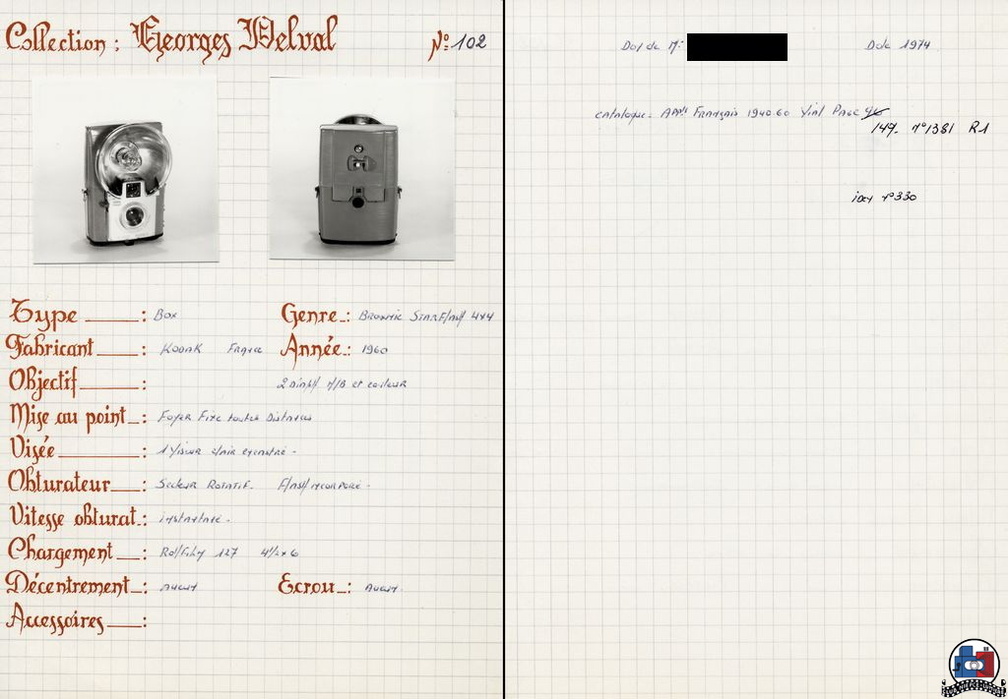 Collection : Georges Delval
N° 102
Type : Box
Genre : Brownie Starflash 4x4
Fabricant : Kodak France
Année : 1960
Objectif : 2 Diaph N/B et couleur
Mise au point : Foyer Fixe toutes Distances
Visée : 1 Viseur clair
Obturateur : Secteur Rotatif. Flash incorporé.
Vitesse obturat. : instantané.
Chargement : Rollfilm 127 4½x6
Décentrement : Aucun
Ecrou : Aucun.
Accessoires :
Don de Mr
Date 1974
catalogue. APPls Français 1940.60 Vial Page
149. n°1381 R1
n°330